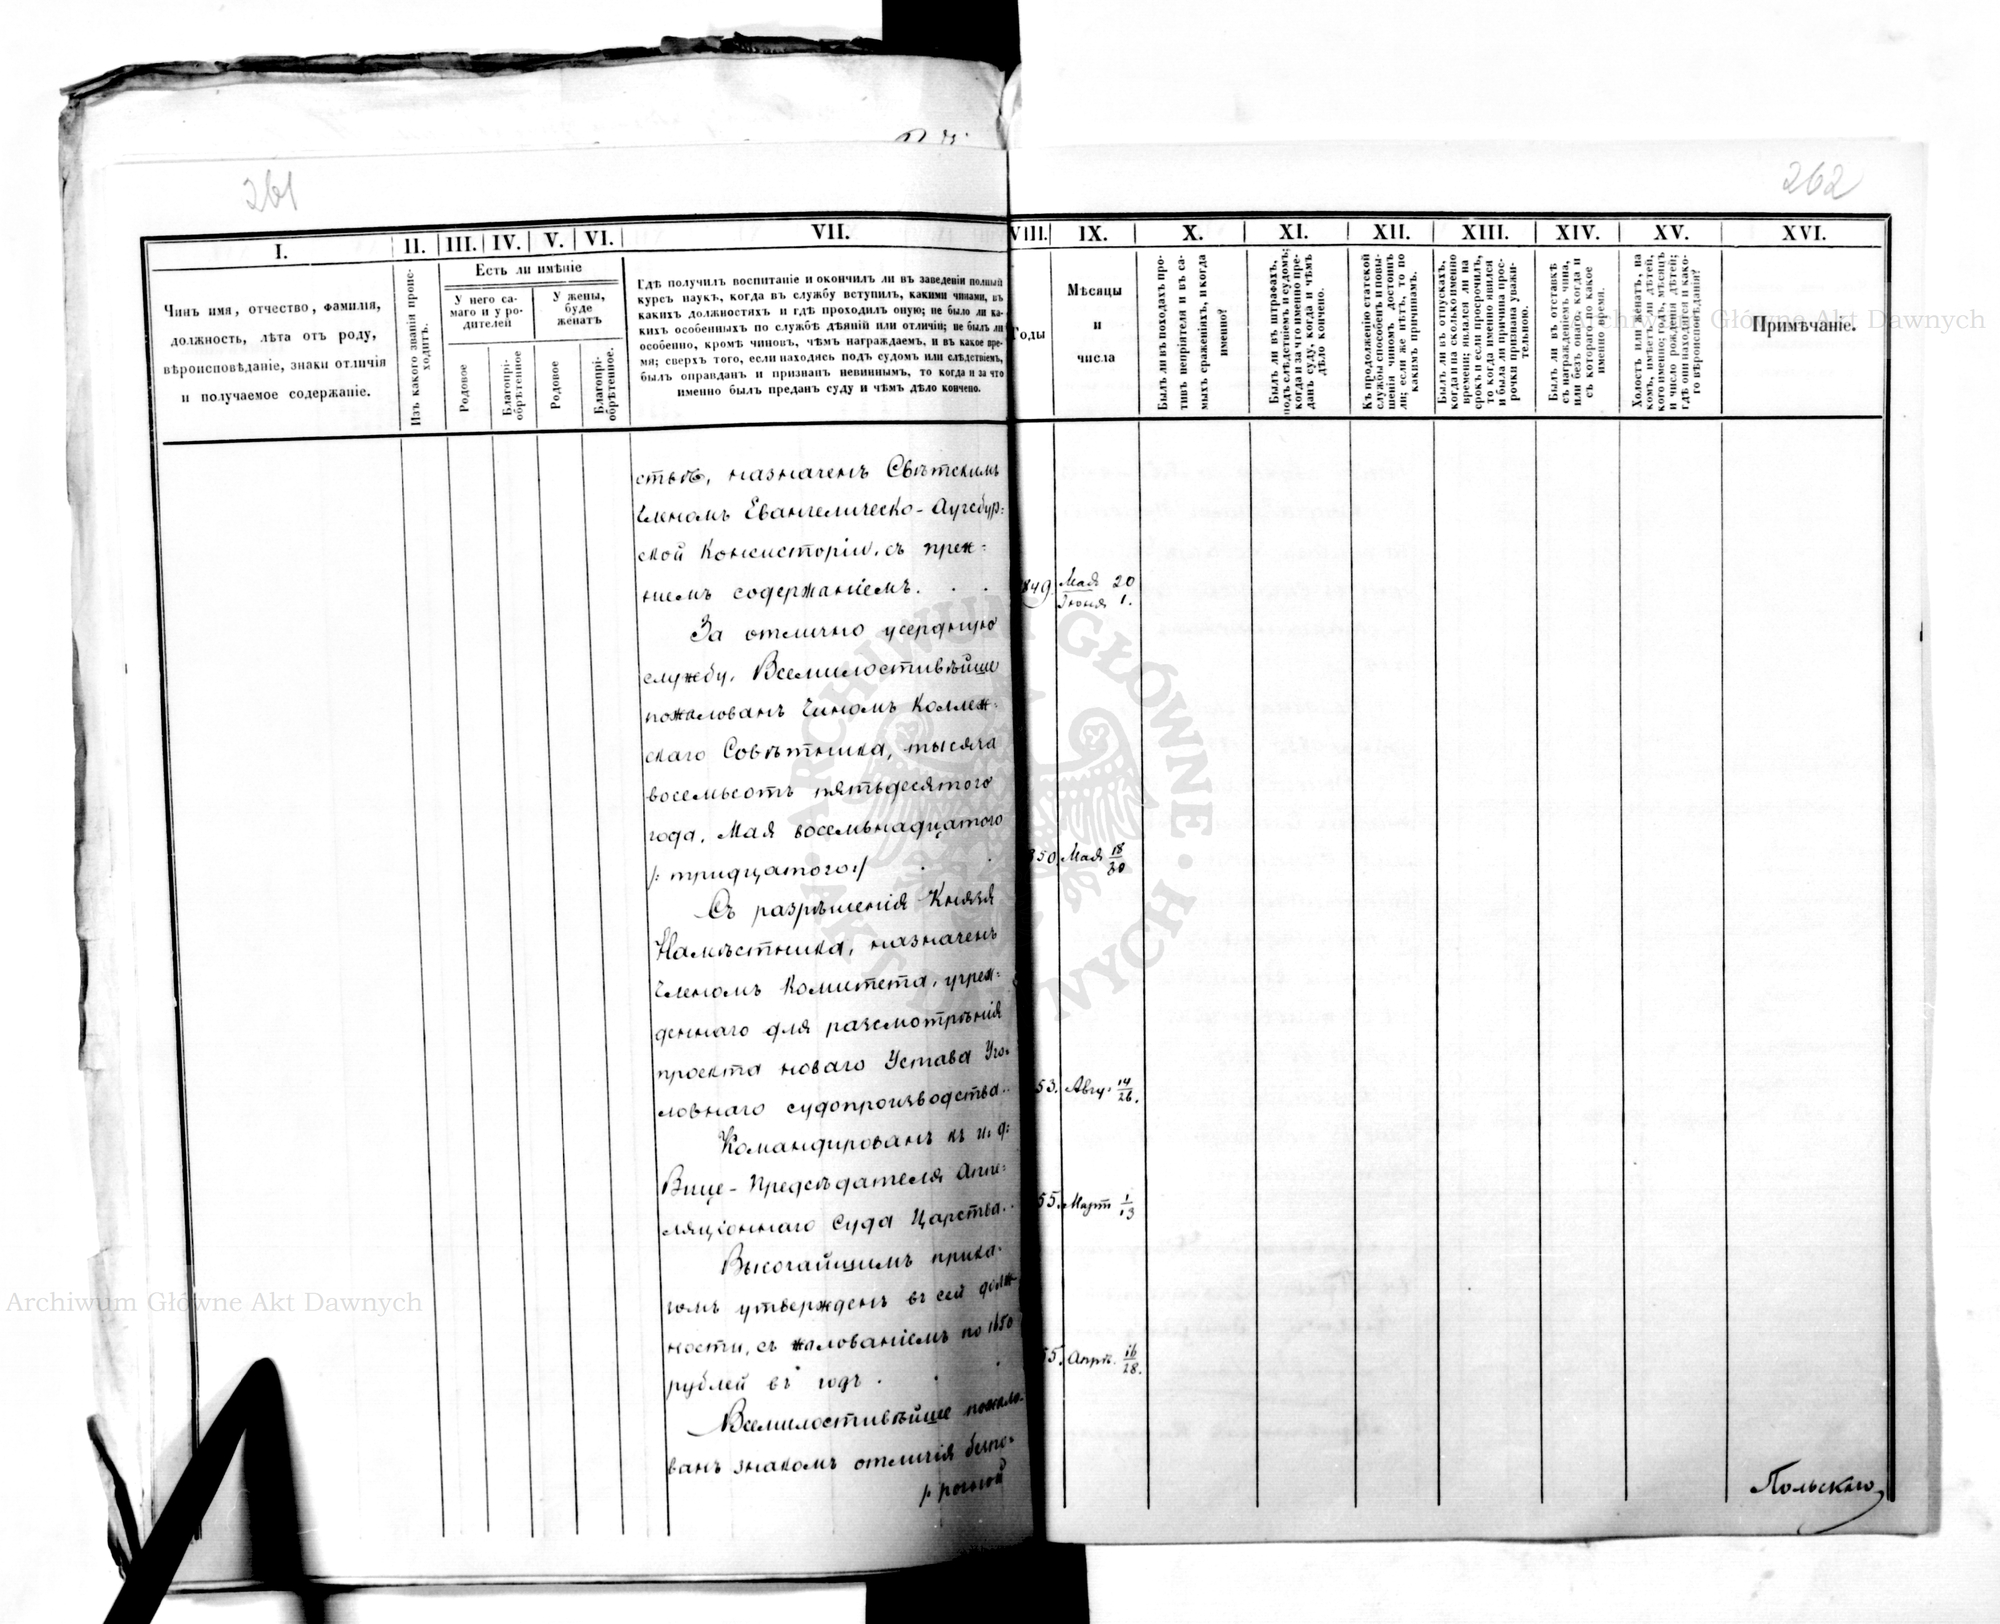 261
262
I.
II.
III.
IV.
V.
VI.
VII.
VIII.
IX.
X.
XI.
XII.
XIII.
XIV.
XV.
XVI.
Чинъ имя, отчество, фамилія,
должность, лѣта отъ роду,
вѣроисповѣданіе, знаки отличія
и получаемое содержаніе.
Изъ какого званія проис-
ходитъ.
Есть ли имѣніе
У него са-
маго и у ро-
дителей
У жены,
буде
женатъ
Родовое
Благопрі-
обрѣтенное
Родовое
Благопрі-
обрѣтенное.
Гдѣ получилъ воспитаніе и окончилъ ли въ заведеніи полный
курсъ наукъ, когда въ службу вступилъ, какими чинами, въ
какихъ должностяхъ и гдѣ проходилъ оную; не было ли ка-
кихъ особенныхъ по службѣ дѣяній или отличій; не былъ ли
особенно, кромѣ чиновъ, чѣмъ награждаемъ, и въ какое вре-
мя; сверхъ того, если находясь подъ судомъ или слѣдствіемъ,
былъ оправданъ и признанъ невиннымъ, то когда и за что
именно былъ преданъ суду и чѣмъ дѣло кончено.
Годы
Мѣсяцы
и
числа
Былъ ли въ походахъ про-
тивъ непріятеля и въ са-
мыхъ сраженіяхъ, и когда
именно?
Былъ ли въ штрафахъ,
подъ слѣдствіемъ и судомъ;
когда и за что именно пре-
данъ суду, когда и чѣмъ
дѣло кончено.
Къ продолженію статской
службы способенъ и повы-
шенія чиномъ достоинъ
ли; если же нѣтъ, то по
какимъ причинамъ.
Былъ ли въ отпускахъ,
когда и на сколько именно
времени; являлся ли на
срокъ и если просрочилъ,
то когда именно явился
и была ли причина прос-
рочки признана уважи-
тельною.
Былъ ли въ отставкѣ
съ награжденіемъ чина,
или безъ онаго, когда и
съ котораго по какое
именно время.
Холостъ или женатъ, на
комъ, имѣетъ ли дѣтей,
кого именно; годъ, мѣсяцъ
и число рожденія дѣтей;
гдѣ они находятся и како-
го вѣроисповѣданія?
Примѣчаніе.
ствѣ, назначенъ Свѣтскимъ
Членомъ Евангелическо-Аугсбур-
ской Консисторіи, съ преж-
нимъ содержаніемъ. . .
849. Мая 20
Іюня 1.
За отлично усердную
службу, Всемилостивѣйше
пожалованъ Чиномъ Коллеж-
скаго Совѣтника, тысяча
восемьсотъ пятьдесятого
года, Мая восемьнадцатого
/: тридцатого:/ . .
850. Мая 18/30
Съ разрѣшенія Князя
Намѣстника, назначенъ
Членомъ Комитета, учреж-
деннаго для разсмотрѣнія
проекта новаго Устава Уго-
ловнаго судопроизводства..
53. Авгу. 14/26.
Командированъ къ и. д:
Вице-Предсѣдателя Аппе-
ляціоннаго Суда Царства..
55. Март 1/13
Высочайшимъ прика-
зомъ утвержденъ въ сей долж-
ности, съ жалованіемъ по 1650
рублей въ годъ . . .
55. Апрѣ. 16/28.
Всемилостивѣйше пожало-
ванъ знакомъ отличія безпо-
/: рочной
Польскаго
Archiwum Główne Akt Dawnych
Archiwum Główne Akt Dawnych
ARCHIWUM GŁÓWNE
AKT DAWNYCH